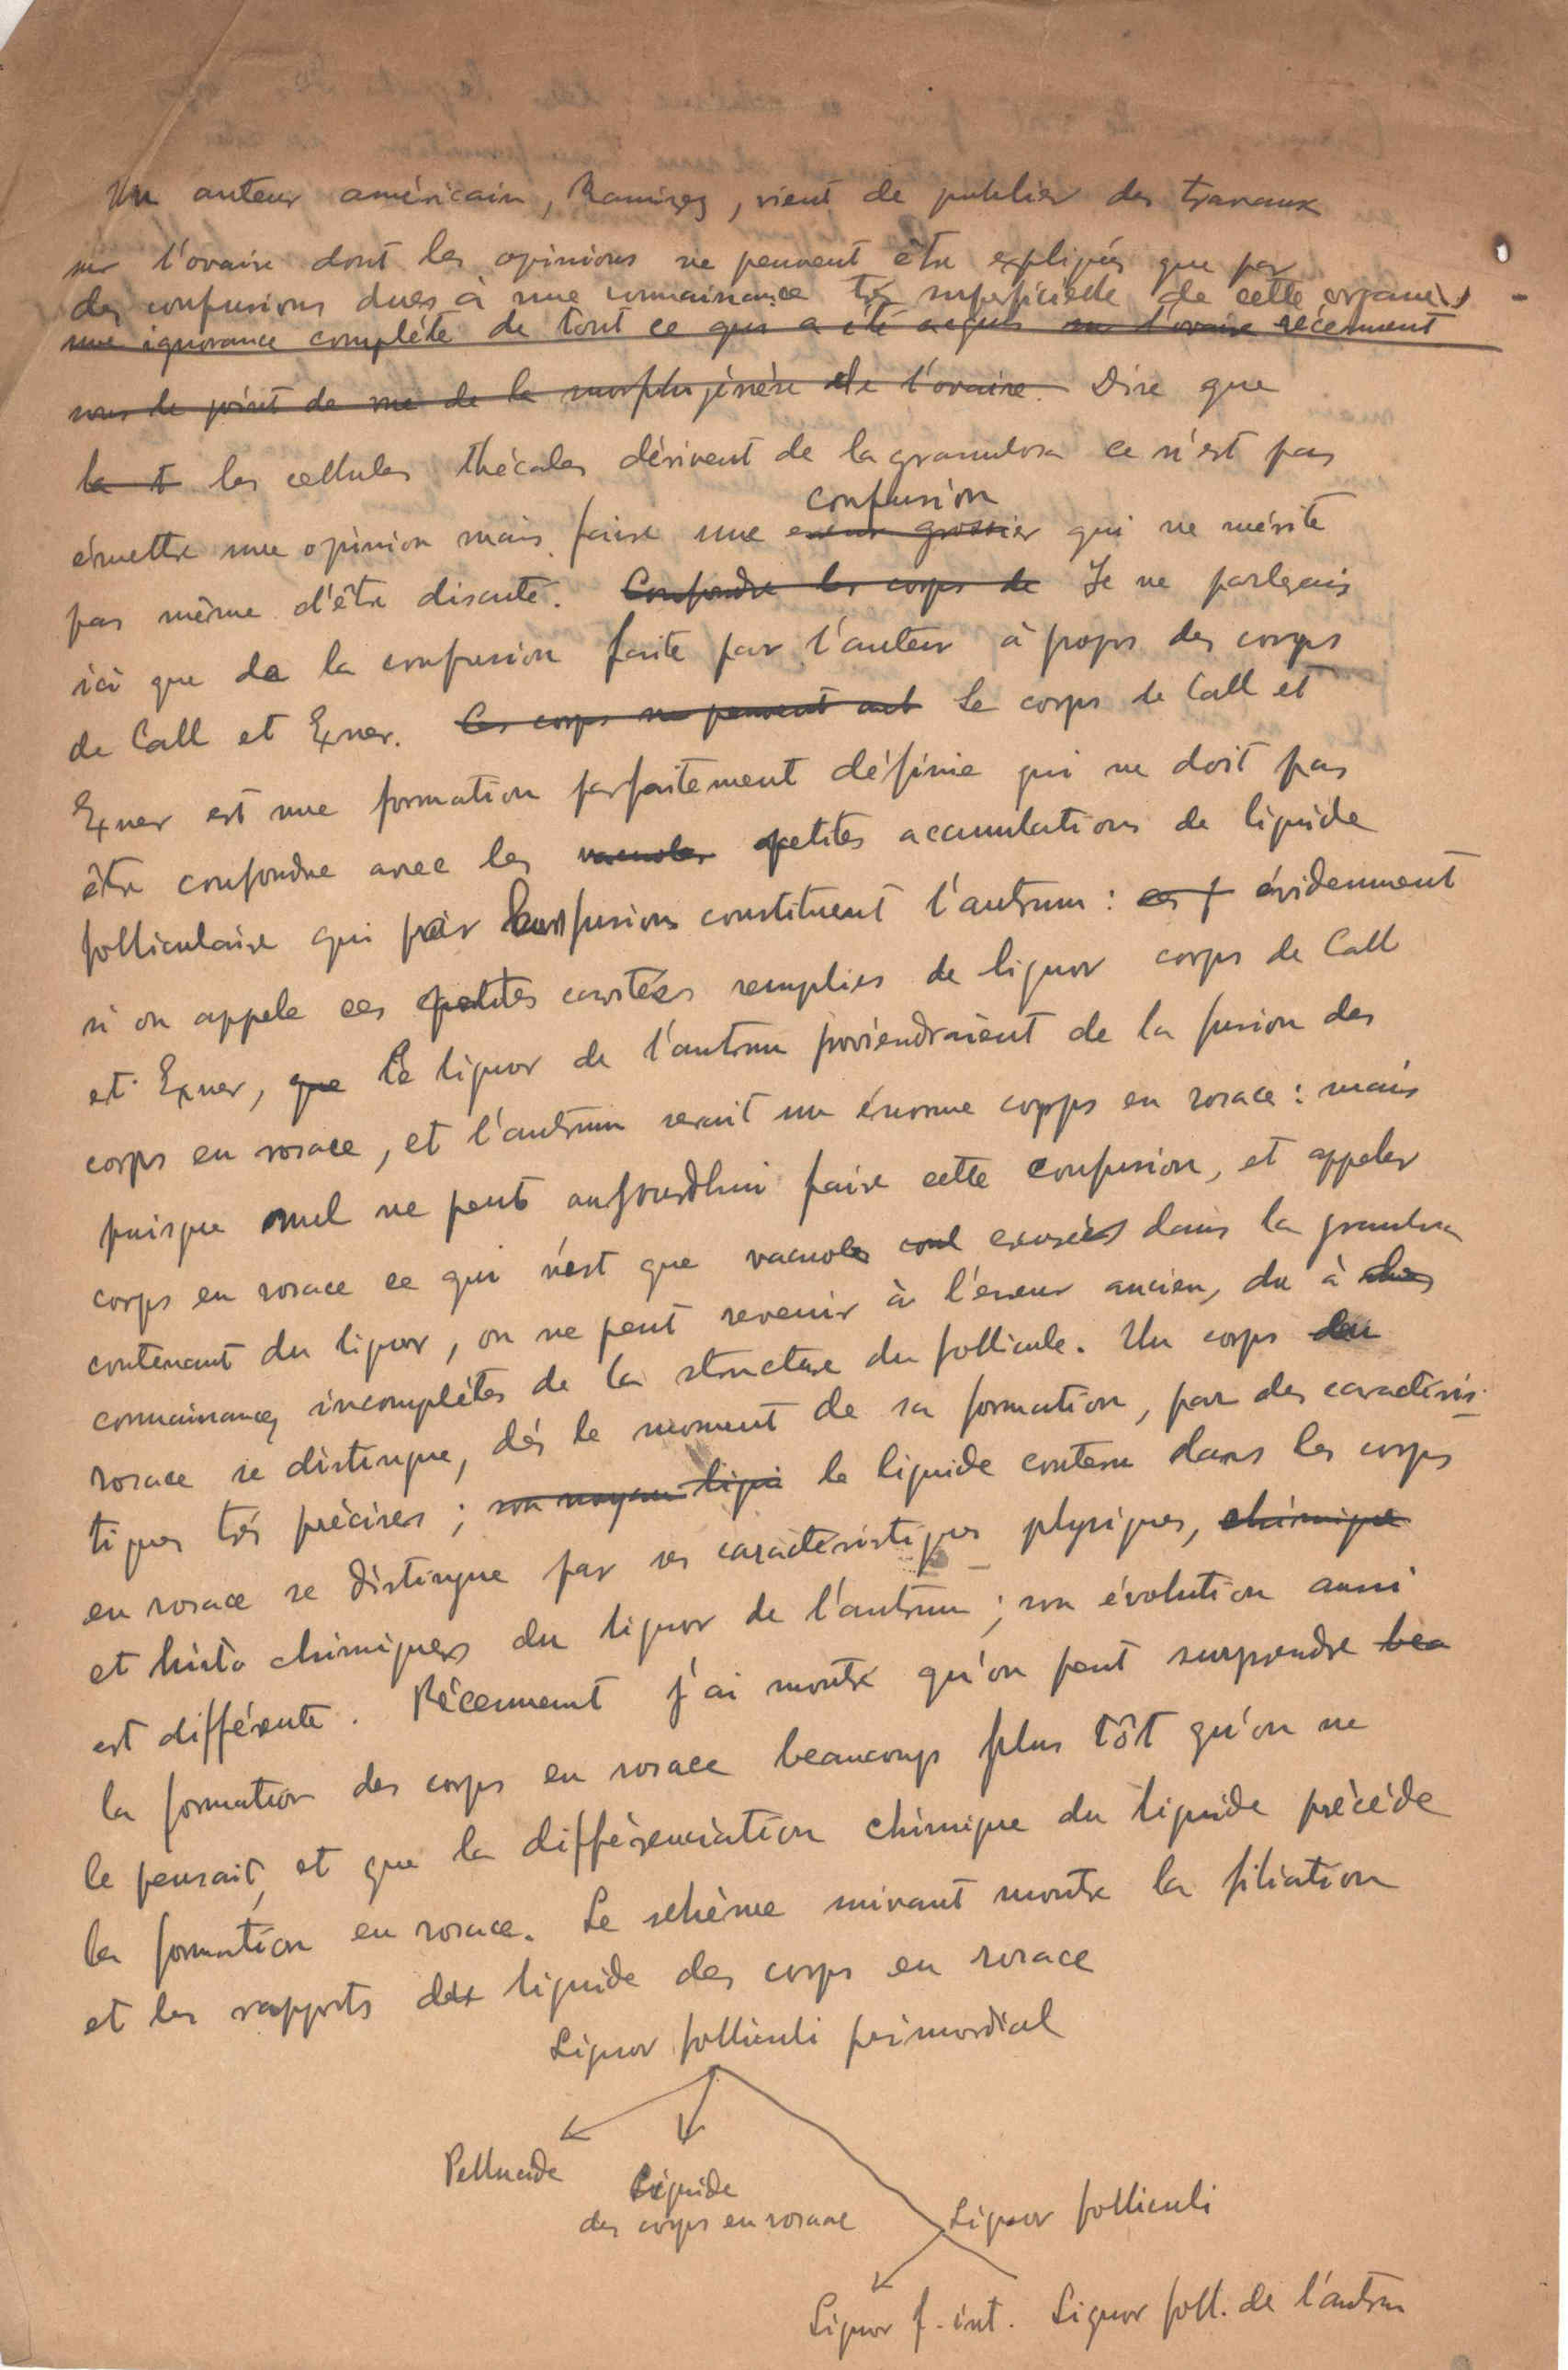 Un auteur américain, Ramirez, vient de publier des travaux
sur l'ovaire dont les opinions ne peuvent être expliqués que par
des confusions dues à une connaissance très superficielle de cette organe
une ignorance complète de tout ce qui a été acquis sur l'ovaire récemment
sous le point de vue de la morphogénèse de l'ovaire. Dire que
la t les cellules thécales dérivent de la granulosa ce n'est pas
confusion
émettre une opinion mais faire une erreur grossier qui ne mérite
pas même d'être discuté. Confondre les corps de Je ne parlerais
ici que de la confusion faite par l'auteur à propos des corps
de Call et Exner. Ces corps ne peuvent Le corps de Call et
Exner est une formation parfaitement définie qui ne doit pas
être confondre avec les vacuoles petites acumulations de liquide
folliculaire qui par fusion constituent l'antrum : évidemment
si on appele ces petites cavités remplies de liquor corps de Call
et Exner, que le liquor de l'antrum proviendraient de la fusion des
corps en rosace, et l'antrum serait un énorme corps en rosace : mais
puisque nul ne peut aujourdhui faire cette confusion, et appeler
corps en rosace ce qui n'est que vacuoles creusées dans la granulosa
contenant du liquor, on ne peut revenir à l'erreur ancien, du à
connaissances incomplètes de la structure du follicule. Un corps en
rosace se distingue, dès le moment de sa formation, par des caractéris-
tiques très précises ; son noyau liqui le liquide contenu dans les corps
en rosace se distingue par ses caractéristiques physiques, chimique
et histo chimiques du liquor de l'antrum ; son évolution aussi
est différente. Récemment j'ai montré qu'on peut surprendre bea
la formation des corps en rosace beaucoup plus tôt qu'on ne
le pensait, et que la différenciation chimique du liquide précède
la formation en rosace. Le schème suivant montre la filiation
et les rapports des liquide des corps en rosace
Liquor folliculi primordial
Pellucide
Liquide
des corps en rosace
Liquor folliculi
Liquor f. int. Liquor foll. de l'antrum